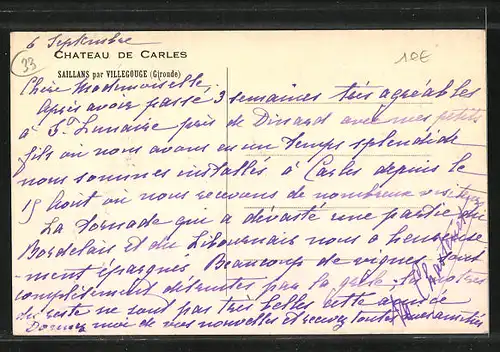 6 Septembre
33
10€
CHATEAU DE CARLES
SAILLANS par VILLEGOUGE (Gironde)
Chère Mademoiselle,
Après avoir passé 3 semaines très agréables
à St Lunaire près de Dinard avec mes petits
fils où nous avons eu un temps splendide
nous sommes installés à Carles depuis le
15 Août où nous recevons de nombreux visiteurs
La tornade qui a dévasté une partie du
Bordelais et du Libournais nous a heureuse-
ment épargnés Beaucoup de vignes sont
complètement détruites par la grêle. les nôtres
du reste ne sont pas très belles cette année
Donnez moi de vos nouvelles et recevez toutes mes amitiés